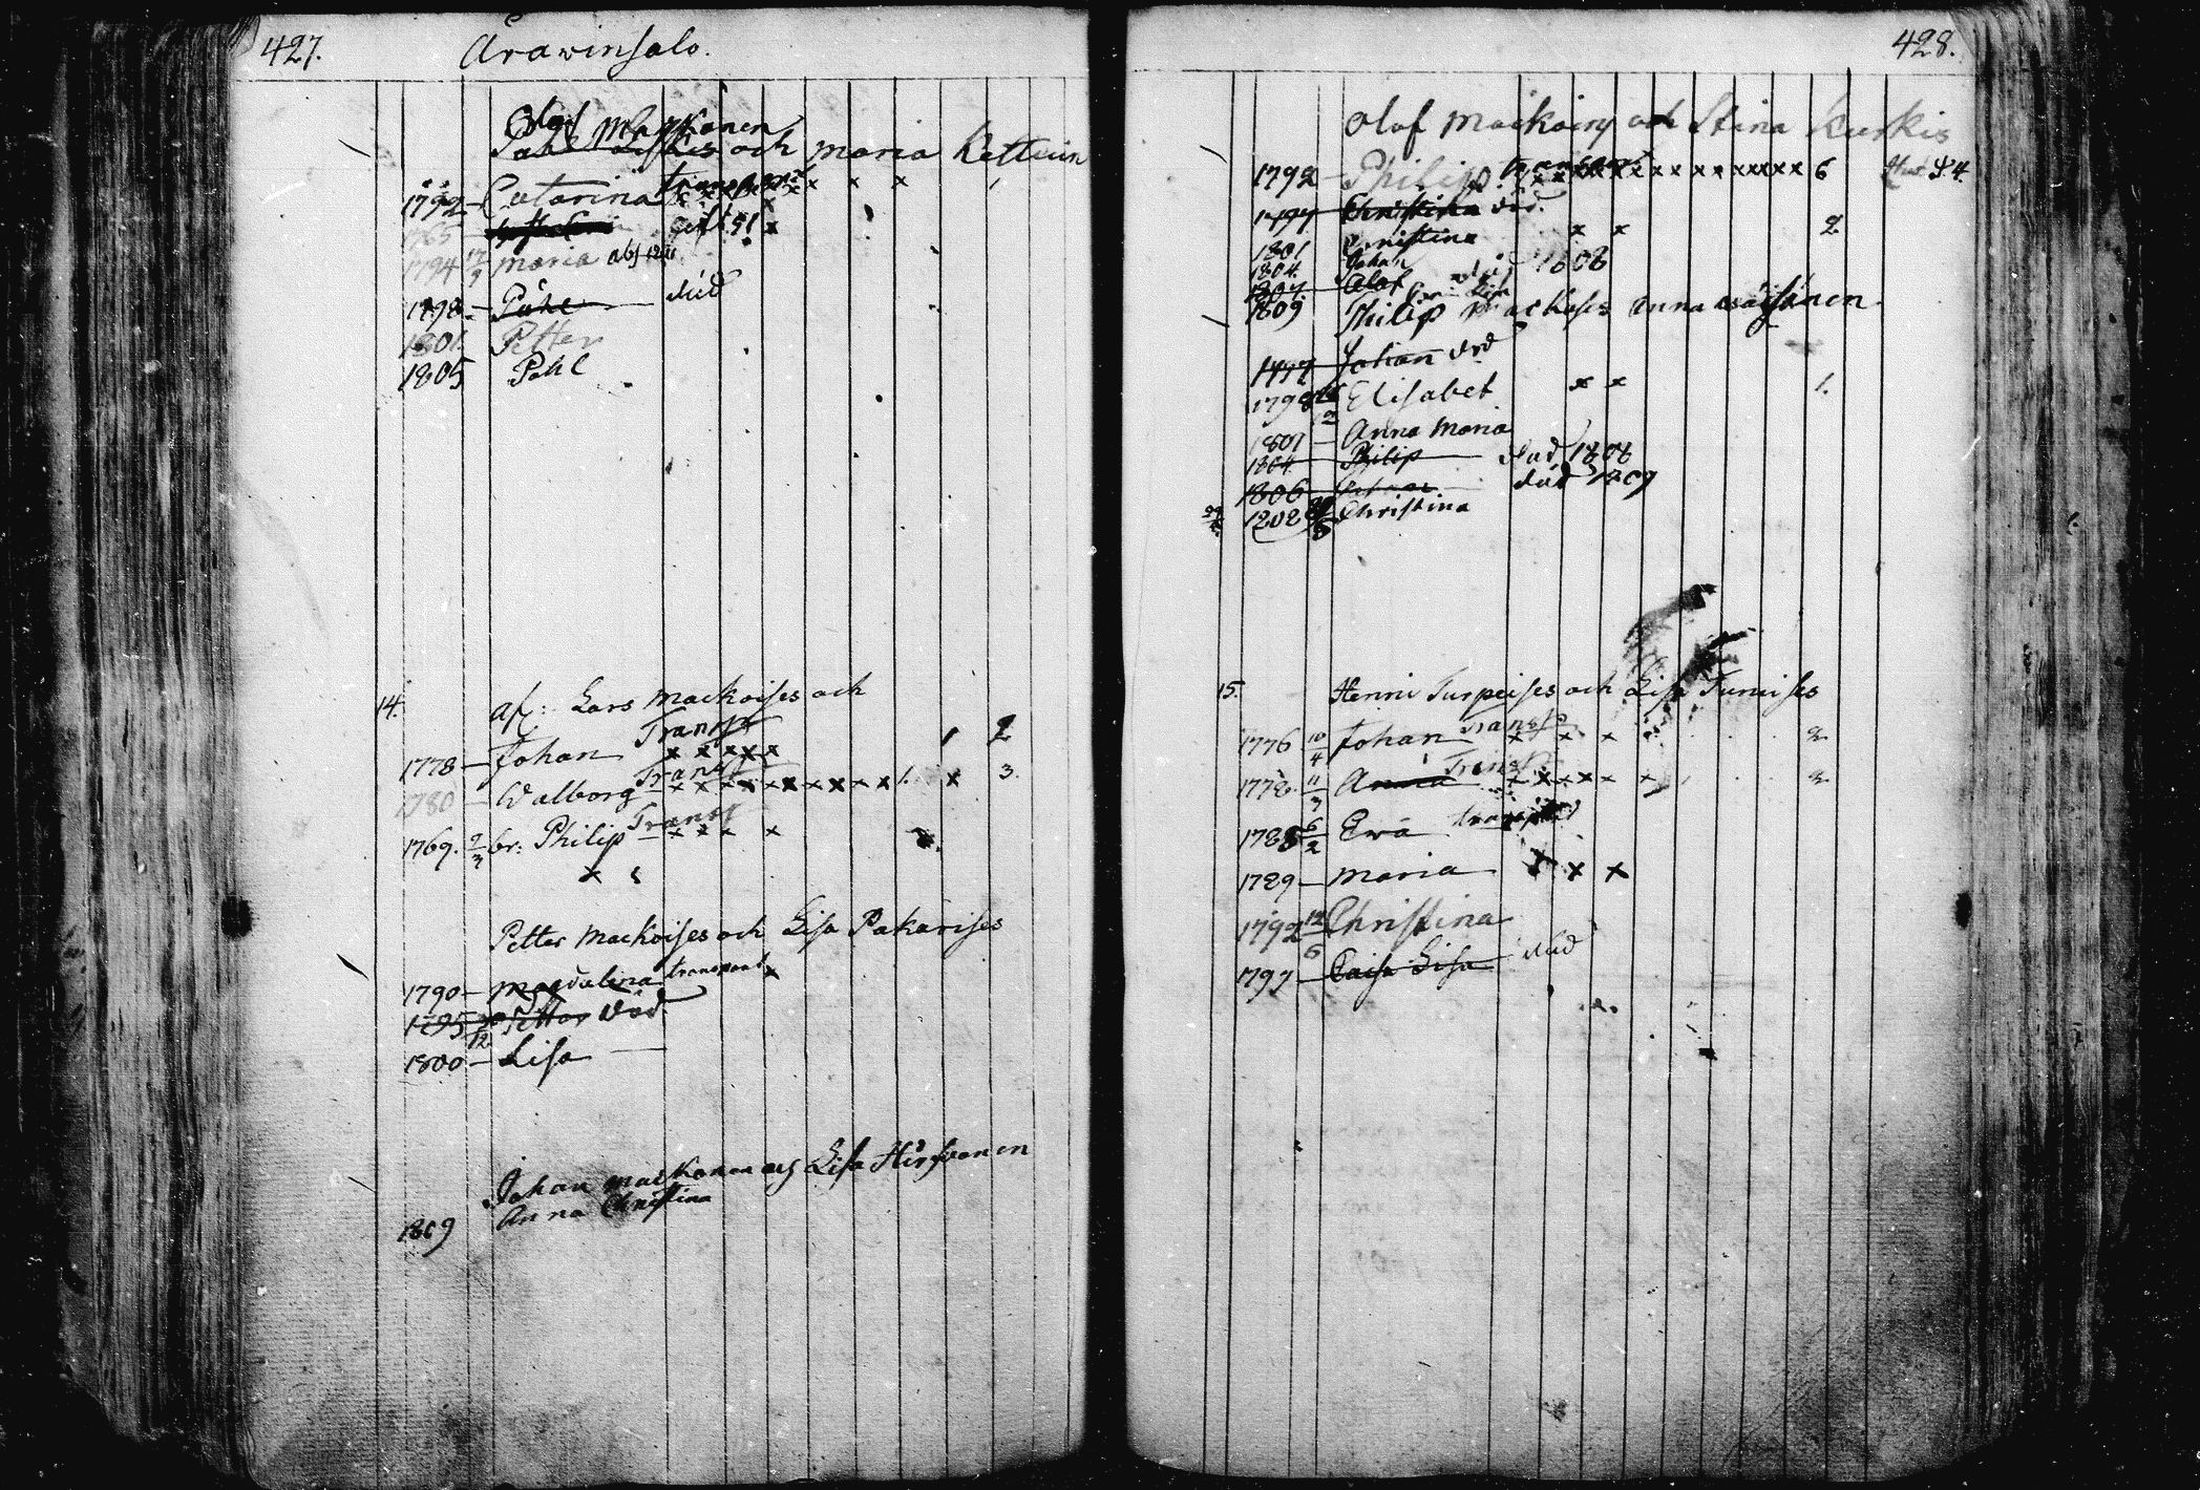 427. Arawinsalo.
Olof Mackonen
och Maria Kettuin
1792 – Catarina transport x x x
1765 gift 91 x
1794 17/9 Maria abs
1798 – Påhl död
1801. Petter
1805 Pohl
14. af: Lars Mackoises och
1778 – Johan Transp x x x x x 1 2
1780 – Walborg Transp x x x x x x x x x x 1. x 3.
1769. 9/3 br: Philip Transp x x x x
x
Petter Mackoises och Lisa Pakarises
1790 – Magdalena transport x
1795 Petter död
1800 – Lisa
Johan Mackonen och Lisa Hirfvonen
1809 Anna Christina
428.
Olof Mackoing och Stina Kurkis
1792 – Philip. x x x x x x x x x x x x x x 6
1797 Christina död.
1801 Christina x x 2
1804. Johan
1807. Olof död 1808
1809
Philip Mackoises Anna Wäisänen
1797 Johan död
1798 Elisabet x x 1.
1801 – Anna Maria
1804 Philip död 1808
1806 död 1809
1808 Christina
15. Henric Turpeises och Lisa Tumises
1776 10/4 Johan Transp x x x 2
1778. 11/3 Anna Transp x x x x x x 2
1788 6/2 Ewa transport
1789 – Maria x x x
1792 12/6 Christina
1797 – Caisa Lisa död